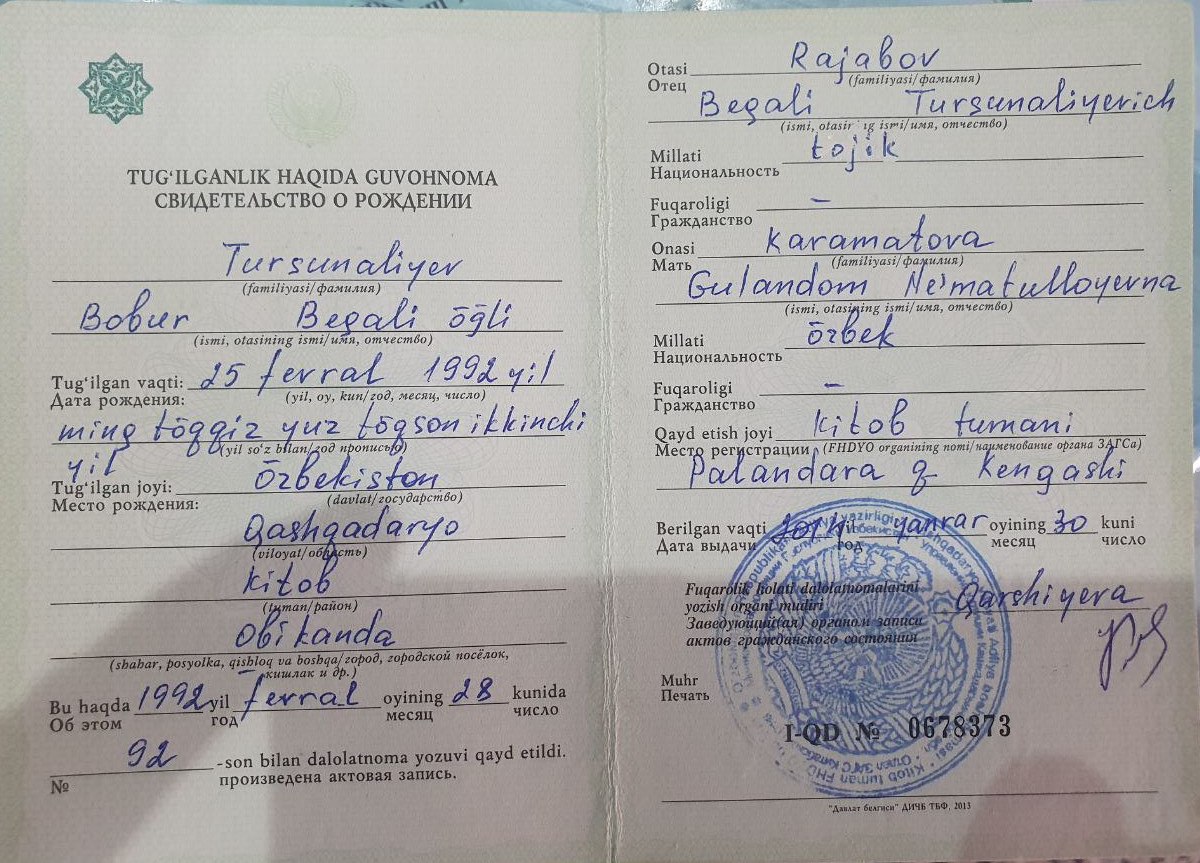 TUG‘ILGANLIK HAQIDA GUVOHNOMA
СВИДЕТЕЛЬСТВО О РОЖДЕНИИ
Tursunaliyev
(familiyasi/фамилия)
Bobur Begali õğli
(ismi, otasining ismi/имя, отчество)
Tug‘ilgan vaqti: 25 fevral 1992 yil
Дата рождения: (yil, oy, kun/год, месяц, число)
ming tõqqiz yuz tõqson ikkinchi
yil (yil so‘z bilan/год прописью)
Tug‘ilgan joyi: Õzbekiston
Место рождения: (davlat/государство)
Qashqadaryo
(viloyat/область)
Kitob
(tuman/район)
Obikanda
(shahar, posyolka, qishloq va boshqa/город, городской посёлок,
кишлак и др.)
Bu haqda 1992 yil fevral oyining 28 kunida
Об этом год месяц число
92 -son bilan dalolatnoma yozuvi qayd etildi.
№ произведена актовая запись.
Otasi Rajabov
Отец (familiyasi/фамилия)
Begali Tursunaliyevich
(ismi, otasining ismi/имя, отчество)
Millati tojik
Национальность
Fuqaroligi –
Гражданство
Onasi Karamatova
Мать (familiyasi/фамилия)
Gulandom Ne'matulloyevna
(ismi, otasining ismi/имя, отчество)
Millati õzbek
Национальность
Fuqaroligi –
Гражданство
Qayd etish joyi Kitob tumani
Место регистрации (FHDYO organining nomi/наименование органа ЗАГСа)
Palandara q Kengashi
Berilgan vaqti yil yanvar oyining 30 kuni
Дата выдачи год месяц число
Fuqarolik holati dalolatnomalarini
yozish organi mudiri Qarshiyeva
Заведующий(ая) органом записи
актов гражданского состояния
Muhr
Печать
I-QD № 0678373
"Давлат белгиси" ДИЧБ ТБФ, 2013